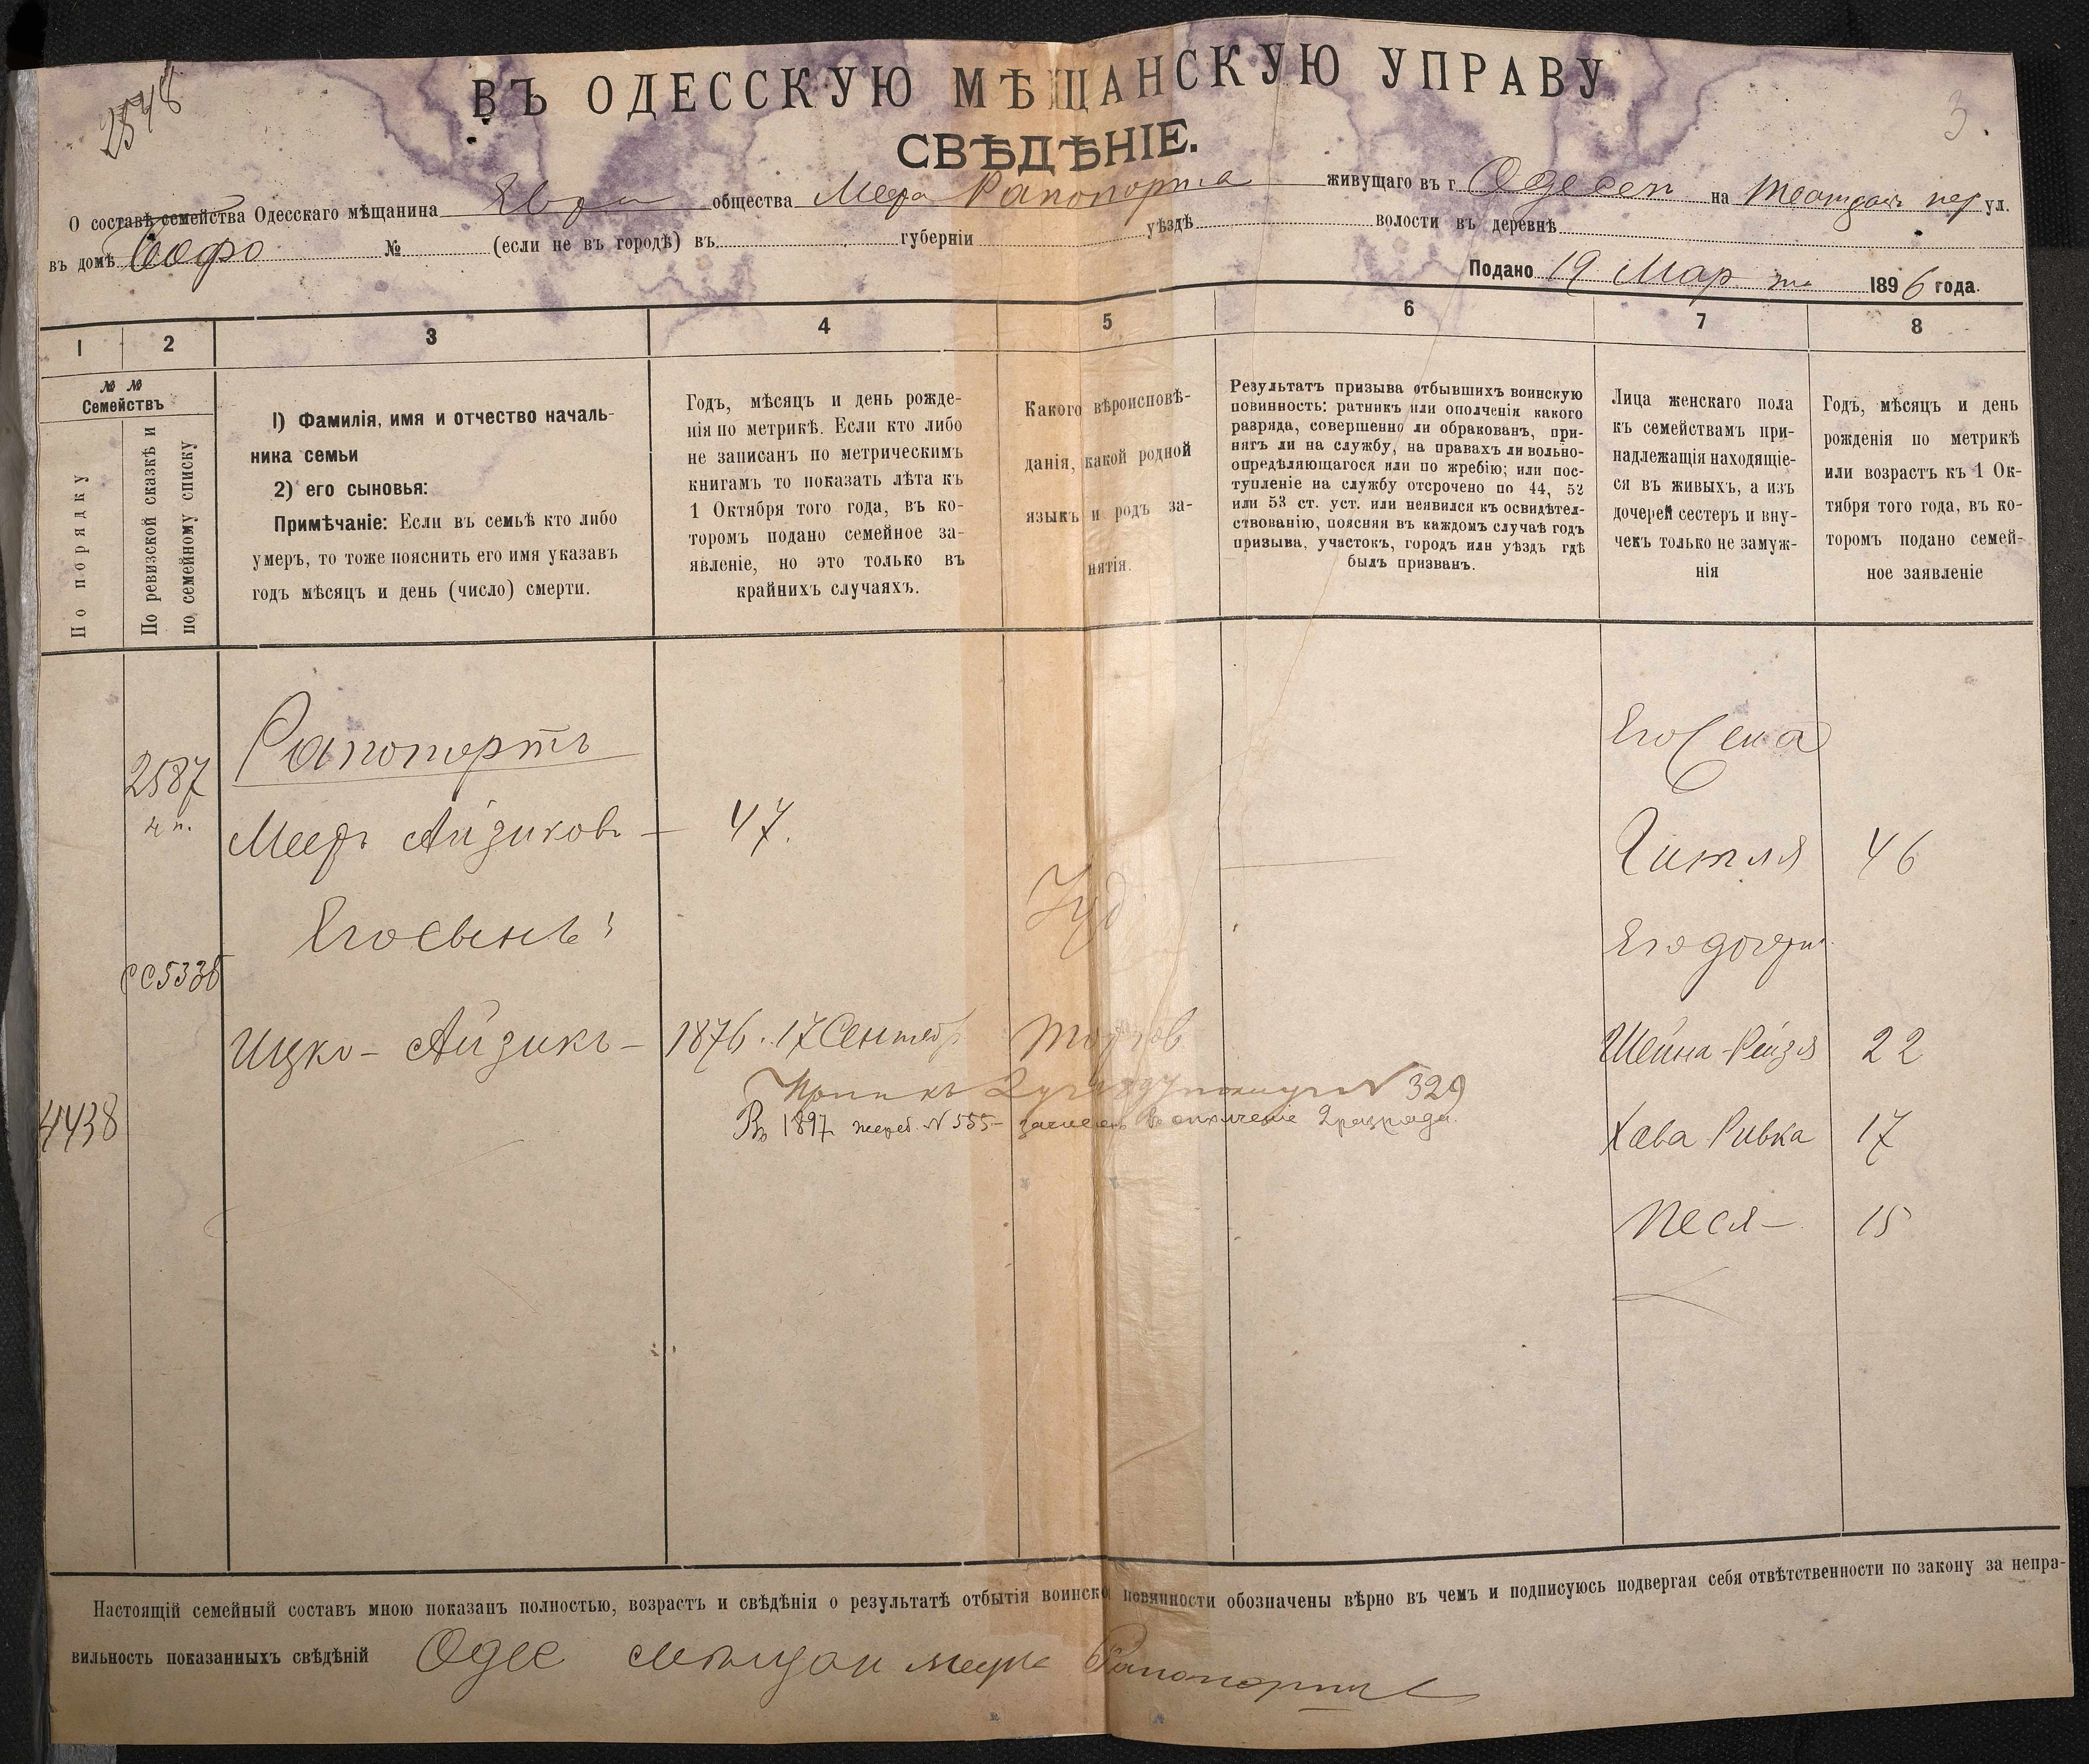 2548
3.
ВЪ ОДЕССКУЮ МѢЩАНСКУЮ УПРАВУ
СВѢДѢНІЕ.
О составѣ семейства Одесскаго мѣщанина Евр общества Меера Рапопорта живущаго въ г. Одессѣ на пер ул.
въ домѣ № (если не въ городѣ) въ губерніи уѣздѣ волости въ деревнѣ
Подано 19 Марта 1896 года.
1 2 3 4 5 6 7 8
№ №
Семействъ
По порядку
По ревизской сказкѣ и
по семейному списку
1) Фамилія, имя и отчество началь-
ника семьи
2) его сыновья:
Примѣчаніе: Если въ семьѣ кто либо
умеръ, то тоже пояснить его имя указавъ
годъ мѣсяцъ и день (число) смерти.
Годъ, мѣсяцъ и день рожде-
нія по метрикѣ. Если кто либо
не записанъ по метрическимъ
книгамъ то показать лѣта къ
1 Октября того года, въ ко-
торомъ подано семейное за-
явленіе, но это только въ
крайнихъ случаяхъ.
Какого вѣроисповѣ-
данія, какой родной
языкъ и родъ за-
нятія.
Результатъ призыва отбывшихъ воинскую
повинность: ратникъ или ополченія какого
разряда, совершенно ли обракованъ, при-
нятъ ли на службу, на правахъ ли вольно-
опредѣляющагося или по жребію; или пос-
тупленіе на службу отсрочено по 44, 52
или 53 ст. уст. или неявился къ освидѣтел-
ствованію, поясняя въ каждомъ случаѣ годъ
призыва, участокъ, городъ или уѣздъ гдѣ
былъ призванъ.
Лица женскаго пола
къ семействамъ при-
надлежащія находящіе-
ся въ живыхъ, а изъ
дочерей сестеръ и вну-
чекъ только не замуж-
нія
Годъ, мѣсяцъ и день
рожденія по метрикѣ
или возрастъ къ 1 Ок-
тября того года, въ ко-
торомъ подано семей-
ное заявленіе
2587 Рапопортъ Его жена
Мееръ Айзиковъ — 47. Гитля 46
Его сынъ: Іуд Его дочери
5335
Ицко - Айзикъ — 1876. 17 Сентяб Торгов Шейна-Рейзя 22
№ 329
4438 Въ 1897 жереб. № 555 — зачисленъ въ ополченіе 2 разряда. Хава Ривка 17
Песя — 15
Настоящій семейный составъ мною показанъ полностью, возрастъ и свѣдѣнія о результатѣ отбытія воинской повинности обозначены вѣрно въ чемъ и подписуюсь подвергая себя отвѣтственности по закону за непра-
вильность показанныхъ свѣдѣній Одес мѣщан Рапопортъ